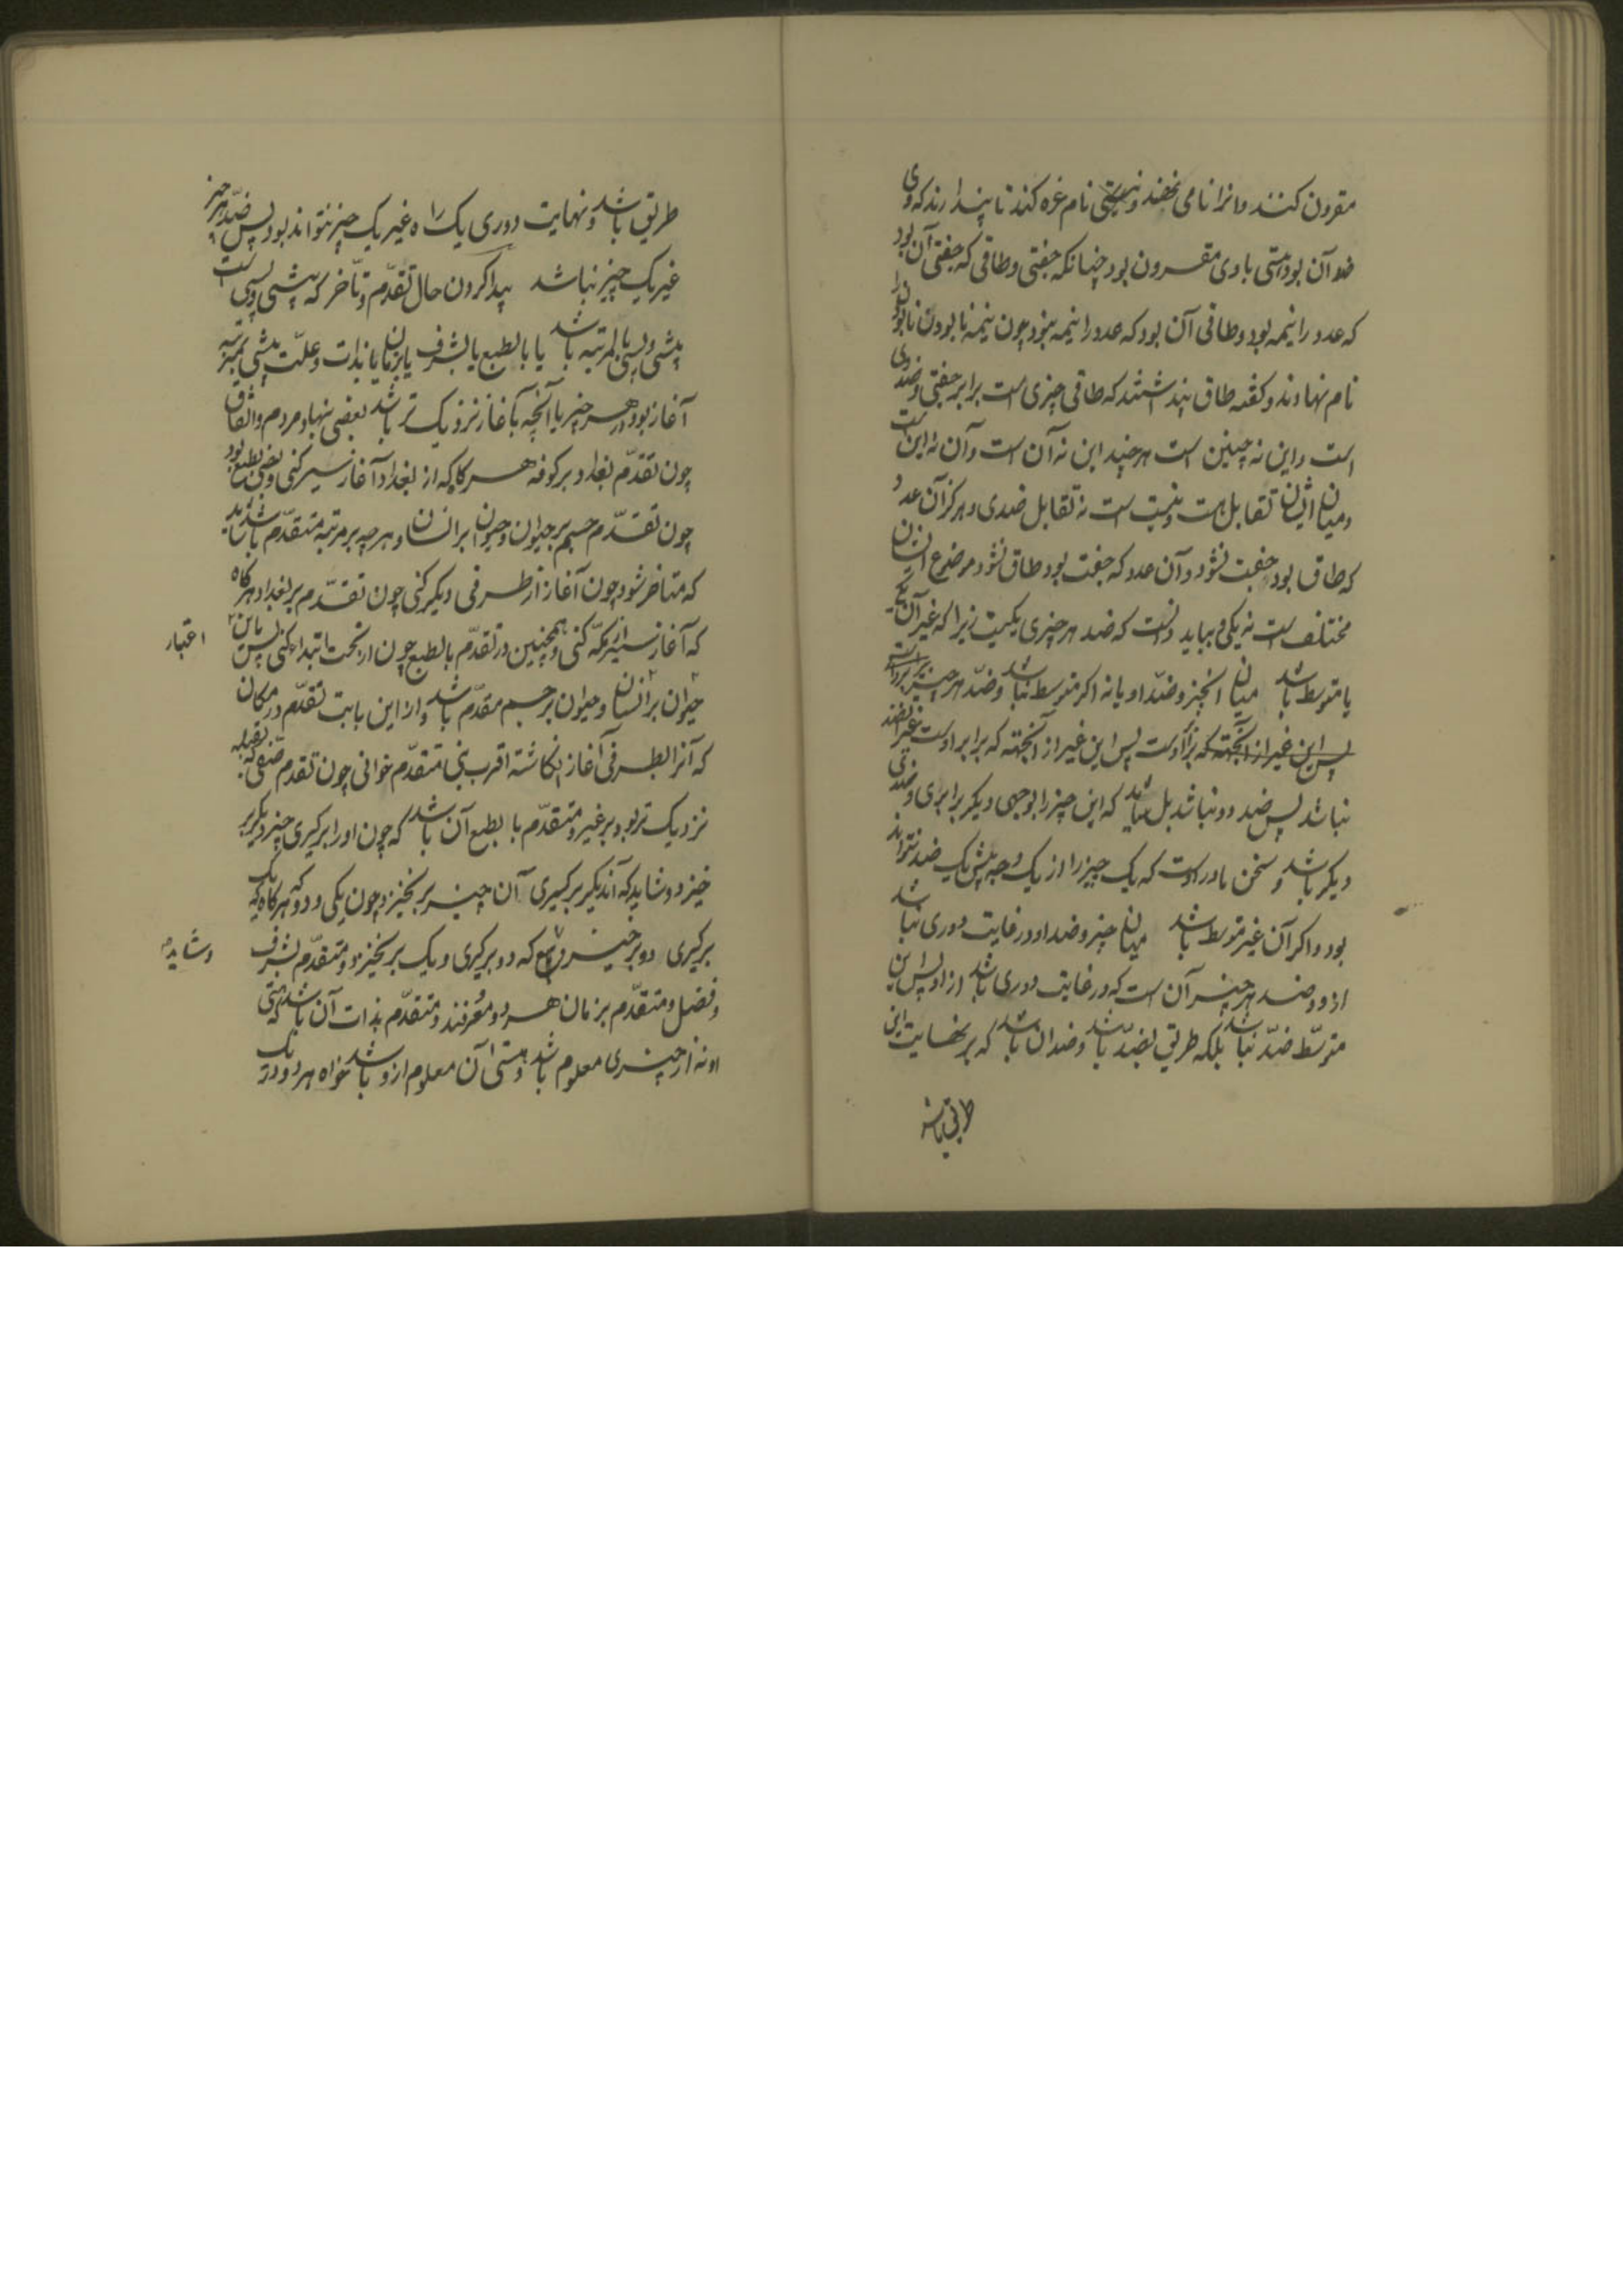 مقرون کنند و انرا نامی نهند و نیستی نام غره کند تا پندارند که وی
ضد آن بود و هستی با وی مقرون بود چنانکه جفتی و طاقی که جفتی آن بود
که عدد را نیمه بود و طاقی آن بود که عدد را نیمه نبود چون نیمه نابودن را
نام نهادند و گفته طاق پنداشتند که طاقی چیزی است برابر جفتی و ضد وی
است و این نه چنین است هر چند این نه آن است و آن نه این است
و میان ایشان تقابل هست و نیست است نه تقابل ضدی و هرگز آن عدد
که طاق بود جفت نشود و آن عدد که جفت بود طاق نشود و موضوع ایشان
مختلف است نه یکی و بباید دانست که ضد هر چیزی یکیست زیرا که غیر آن
یا متوسط باشد میان انچیز و ضد او یا نه اگر متوسط نباشد و ضد هر چیز برابر اوست
پس این غیر از آنجهته که برابر اوست پس این غیر از آنجهته که برابر اوست غیر از ضد
نباشد پس ضد دو نباشد بل شاید که این چیز را بوجهی دیگر برابری و ضدی
دیگر باشد و سخن ما در آنست که یک چیز را از یک وجه بیش یک ضد نتواند
بود و اگر آن غیر متوسط باشد میان چیز و ضد او در غایت دوری نباشد
ازو و ضد هر چیز آن است که در غایت دوری باشد ازاو پس این
متوسط ضد نباشد بلکه طریق بضد باشد و ضد آن باشد که بر نهایت این
طریق باشد
طریق باشد و نهایت دوری یک راه غیر یک چیز نتواند بود پس ضد هر چیز
غیر یک چیز نباشد پیدا کردن حال تقدّم و تأخر که پیشی و پسی است
پیشی و پسی یا بمرتبه باشد یا بالطبع یا بشرف یا بزمان یا بذات و علّت پیشی بمرتبه
آغاز بود در هر چیز یا آنچه بآغاز نزدیک تر باشد بعضی بنهاد مردم و اتفاق
چون تقدّم بغداد بر کوفه هر گاه که از بغداد آغاز سیر کنی و بعضی بطبع بود
چون تقدّم جسم بر حیوان و حیوان بر انسان و هر چه بر مرتبه متقدّم باشد شاید
که متأخر شود چون آغاز از طرفی دیگر کنی چون تقدّم بر بغداد هر گاه
که آغاز سیر از مکّه کنی و همچنین در تقدّم بالطبع چون از تحت ابتدا کنی پس باین
اعتبار
حیوان بر انسان و حیوان بر جسم مقدّم باشد و از این بابت تقدّم در مکان
که آنرا بطرفی آغاز انگاشته اقرب بنی متقدّم خوانی چون تقدم صفی که بقبله
نزدیک تر بود بر غیر و متقدّم بالطبع آن باشد که چون او را برگیری چیز دیگر بر
خیزد و شاید که آن دیگر برگیری آن چیز برنخیزد چون یکی و دو که هر گاه که یک
برگیری دو برخیزد که دو برگیری و یک برنخیزد و متقدّم بشرف
وشاید
و فضل و متقدّم بزمان هر دو معرفند و متقدّم بذات آن باشد که هستی
او نه از چیزی معلوم باشد و هستی آن معلوم ازو باشد خواه هر دو در یک